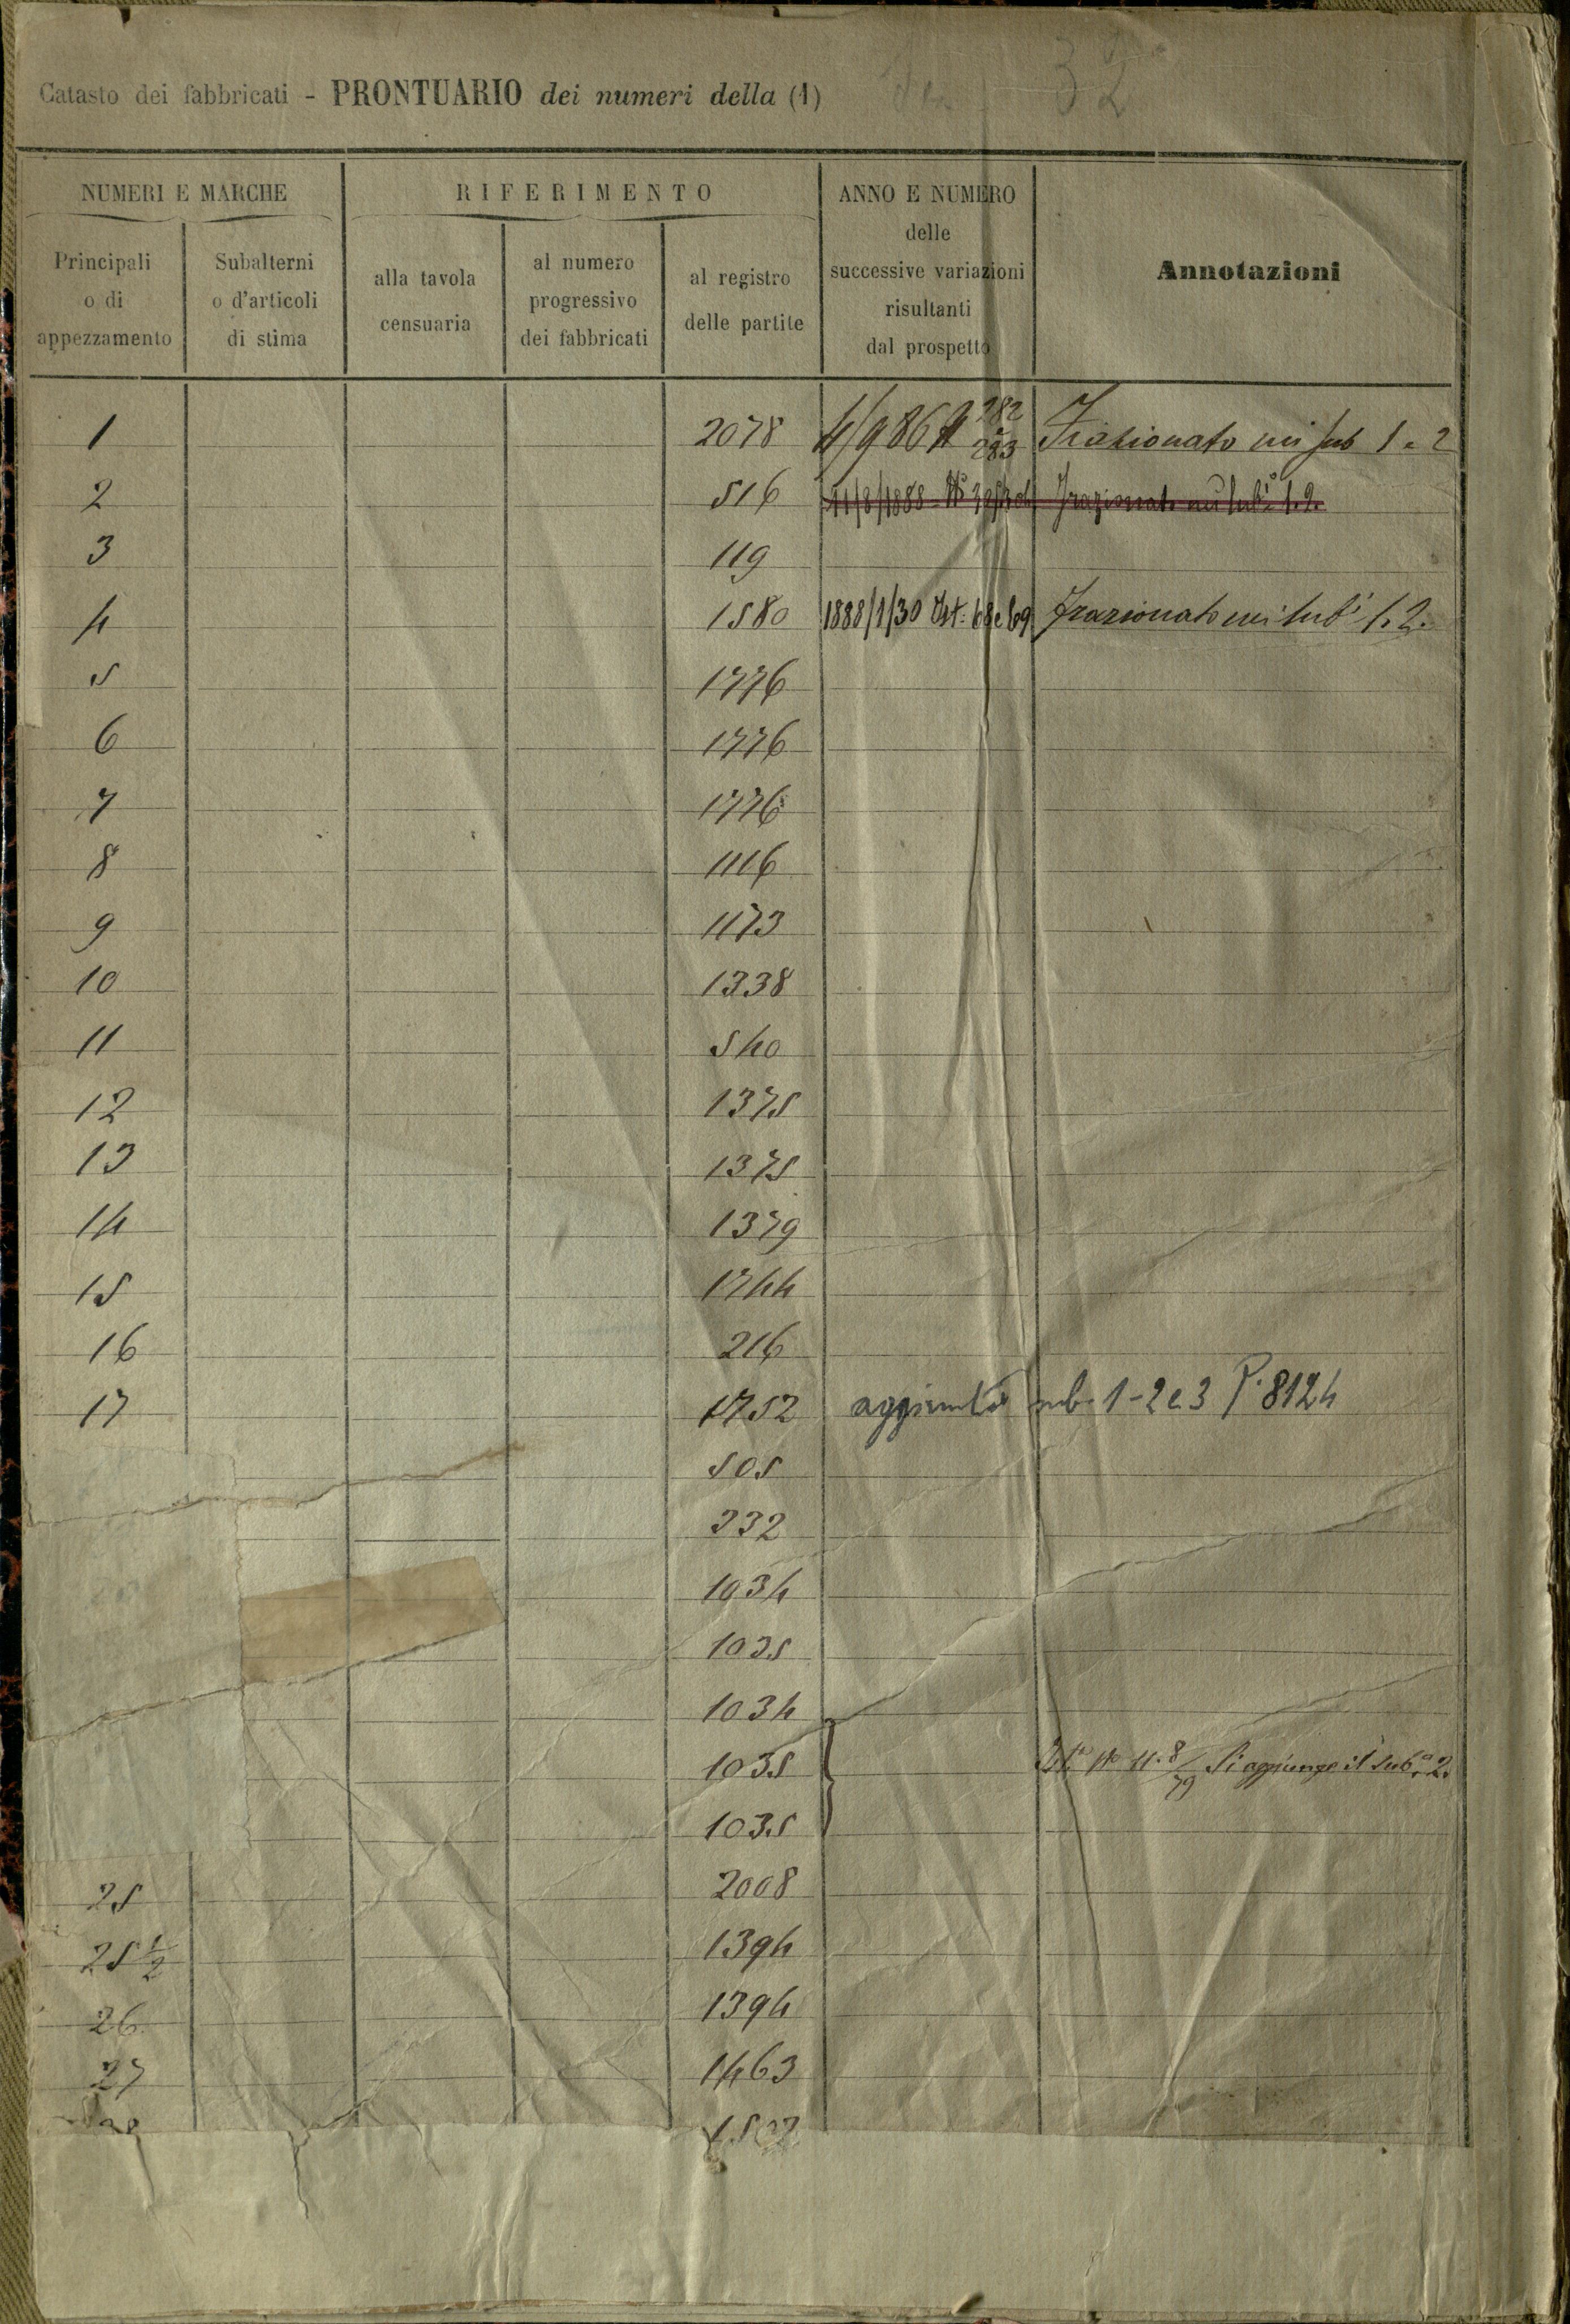 Catasto dei fabbricati - PRONTUARIO dei numeri della (1)
NUMERI E MARCHE
RIFERIMENTO
ANNO E NUMERO
delle
successive variazioni
risultanti
dal prospetto
Annotazioni
Principali
o di
appezzamento
Subalterni
o d'articoli
di stima
alla tavola
censuaria
al numero
progressivo
dei fabbricati
al registro
delle partite
1 2078 4/986 282 283 Frazionato nei sub 1 e 2
2 516 Frazionato nei sub i 1.2.
3 119
4 1580 1888/1/30 Ist: 68 e 69 frazionato nei sub i 1.2.
5 1776
6 1776
7 1776
8 1116
9 1173
10 1338
11 540
12 1375
13 1375
14 1379
15 1744
16 216
17 1752 aggiunto sub. 1-2 e 3 P. 8124
505
332
1034
1035
1034
1035 Si aggiunge il sub.o 2.
1035
25 2008
25 1/2 1394
26 1394
27 1463